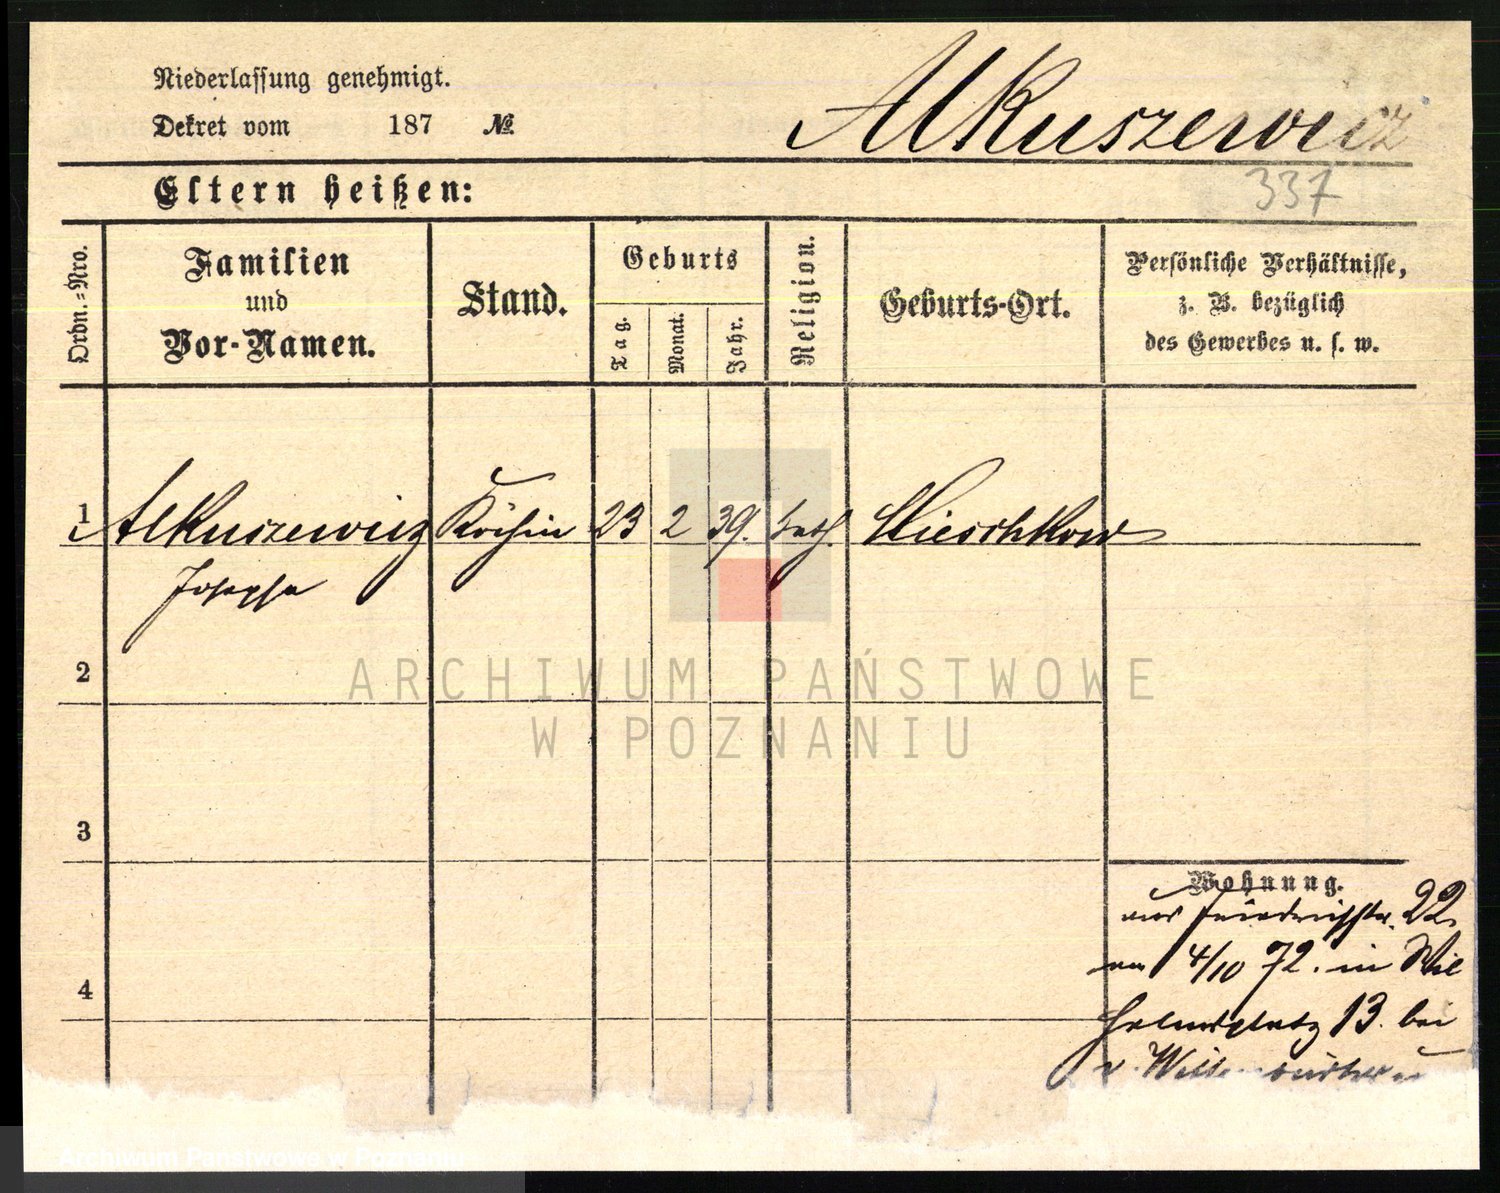 Niederlassung genehmigt.
Dekret vom 187 №
Alkuszewicz
337
Eltern heißen:
Ordn.=Nro.
Familien
und
Vor-Namen.
Stand.
Geburts
Tag.
Monat.
Jahr.
Religion.
Geburts-Ort.
Persönliche Verhältnisse,
z. B. bezüglich
des Gewerbes u. s. w.
1 Alkuszewicz Köchin 23 2 39. kath. Mieschkow
Josepha
2
3
4
Wohnung.
aus Friedrichstr. 22
am 4/10 72. in Wil
helmsplatz 13. bei
v.
ARCHIWUM PAŃSTWOWE
W POZNANIU
Archiwum Państwowe w Poznaniu